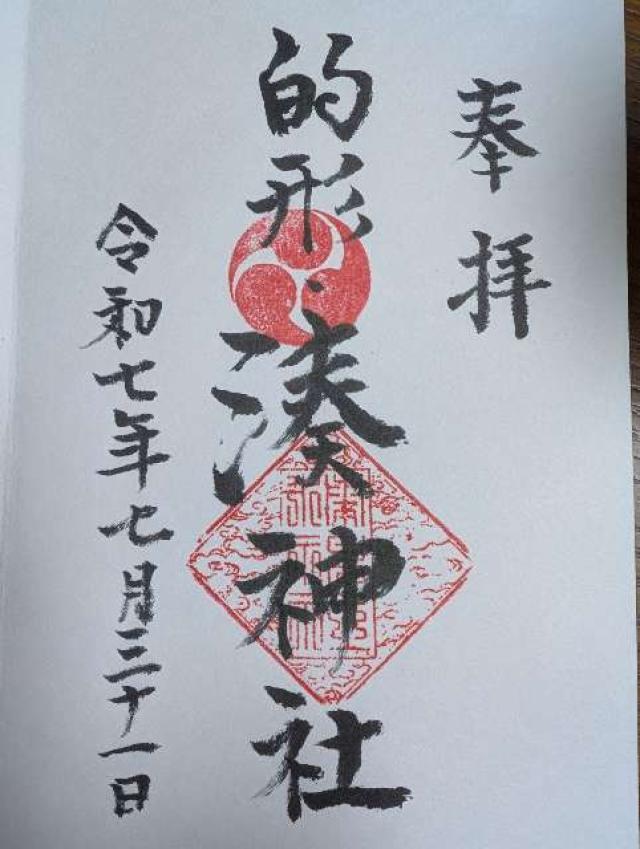 奉拝
的形湊神社
令和七年七月三十一日